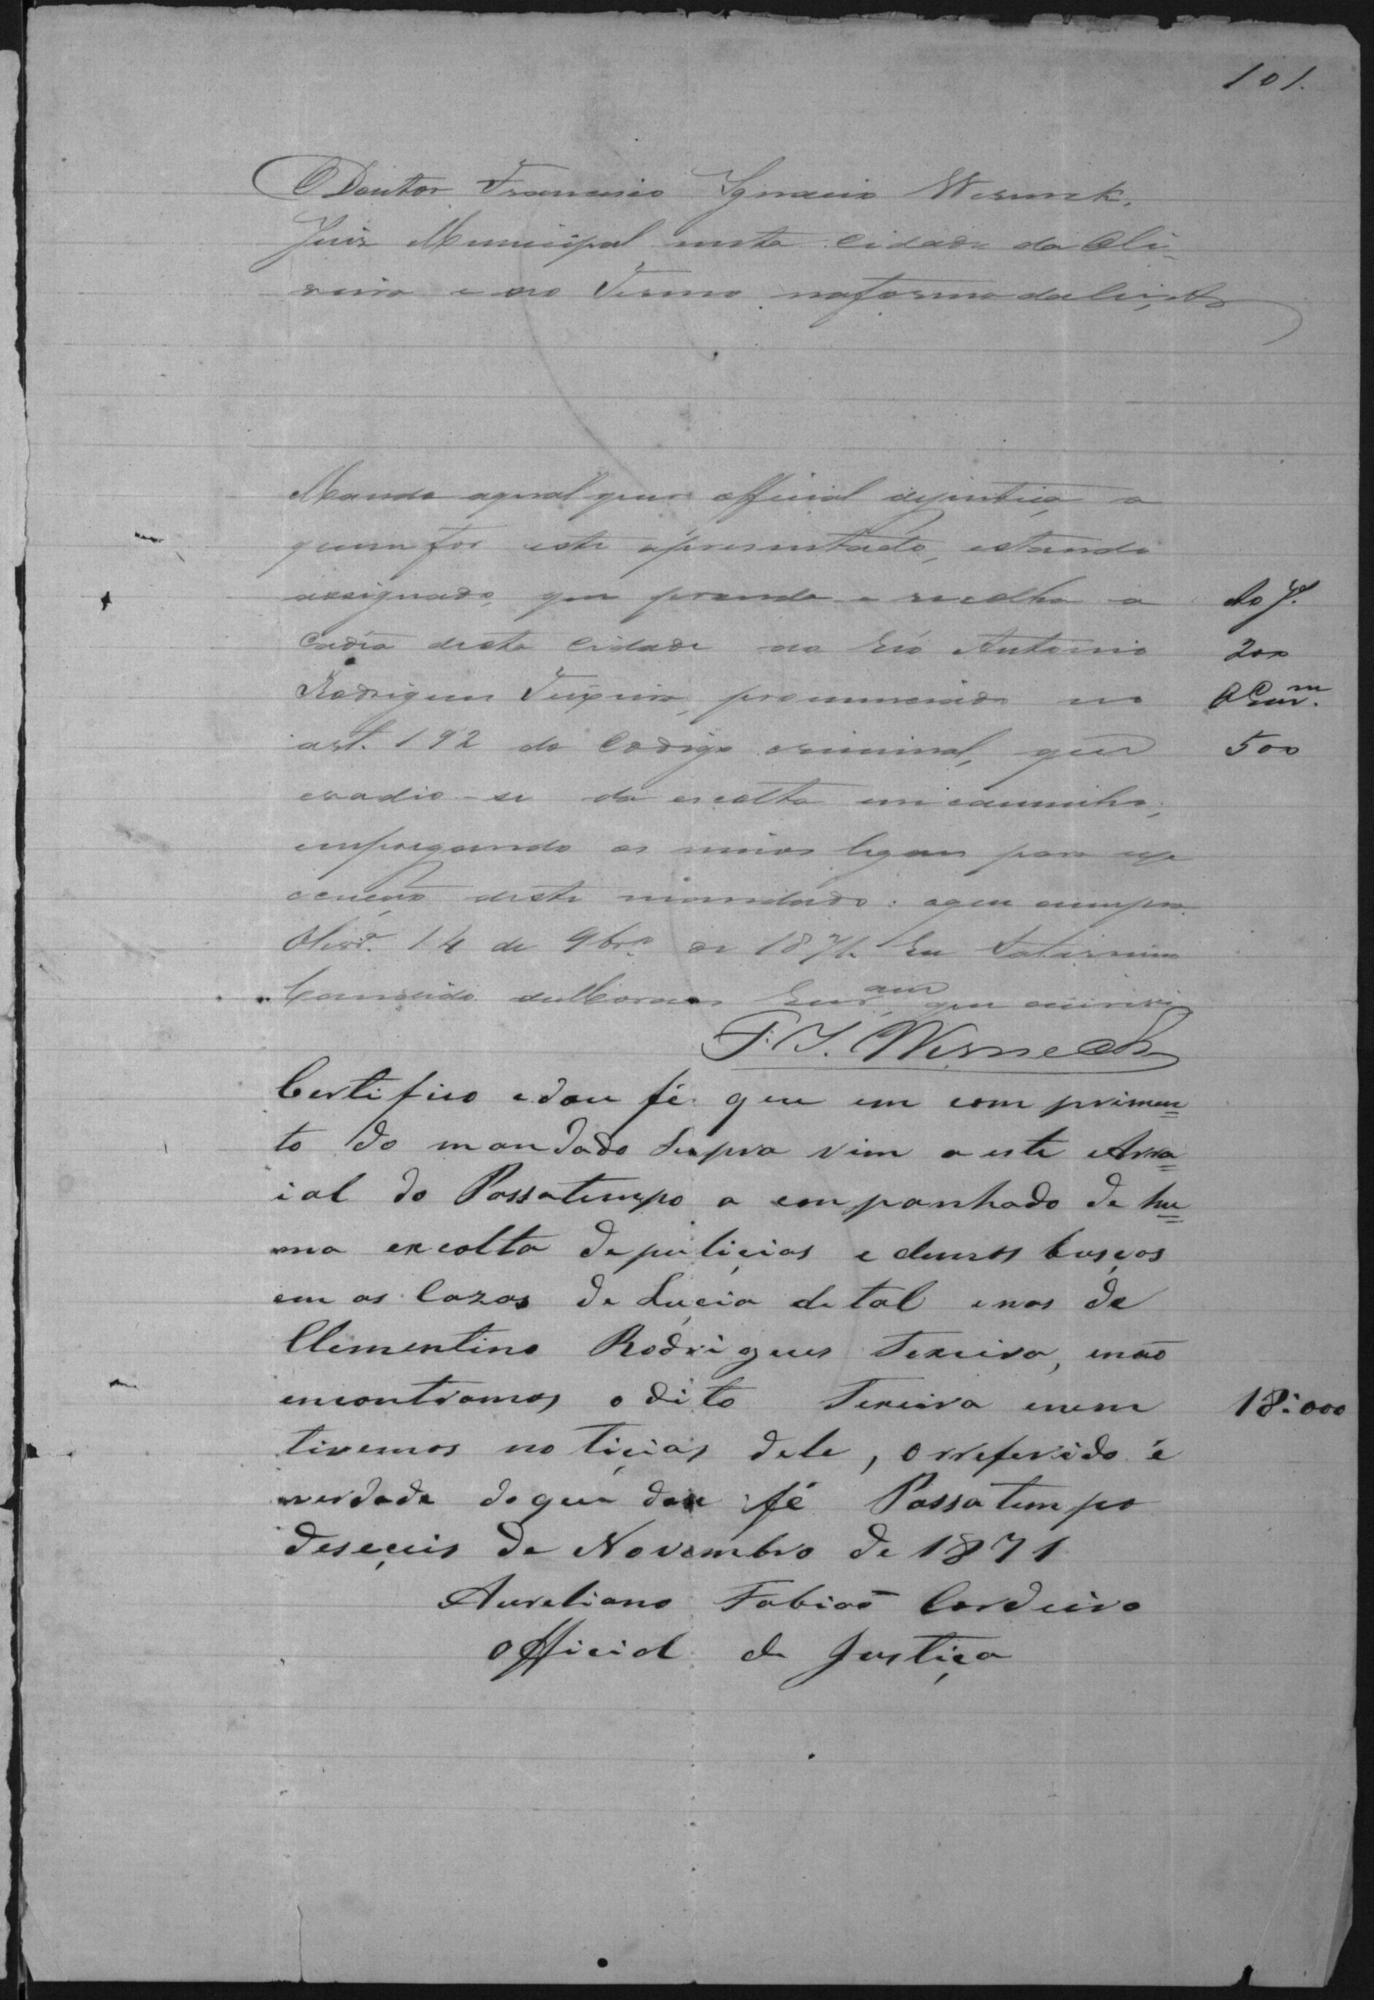 101.
O Doutor Francisco Ignacio Werneck,
Juis Municipal nesta Cidade da Oli-
veira e seo Termo na forma da lei, etc
Mando aqual quer official dejustiça, a
quem for este apresentado, estando
assignado, que prenda e recolha a
Cadia desta Cidade ao reo Antonio
Rodrigues Teixeira, pronunciado no
art. 192 do Codigo criminal, que
evadio-se da escolta em caminho,
empregando os meios legaes para
deste mandado: oque cumpra.
Olivrª. 14 de 9brº. de 1871. Eu Saturnino
Candido deMoraes Escram que escrevi
F. I. Werneck
Ao J.
200
500
Certifico edou fé que em com primen=
to do mandado Supra vim a este Arra=
ial do Passatempo a com panhado de hu=
ma excolta depuliçias e demos busças
em as Cazas de Luçia de tal enas de
Clementino Rodrigues Texeira, enão
encontramos o dito Texeira enem
tivemos notiçias dele, orreferido é
verdade doque dou fé Passatempo
deseçeis de Novembro de 1871
18:000
Aureliano Fabiaõ Cordeiro
Official de Justiça